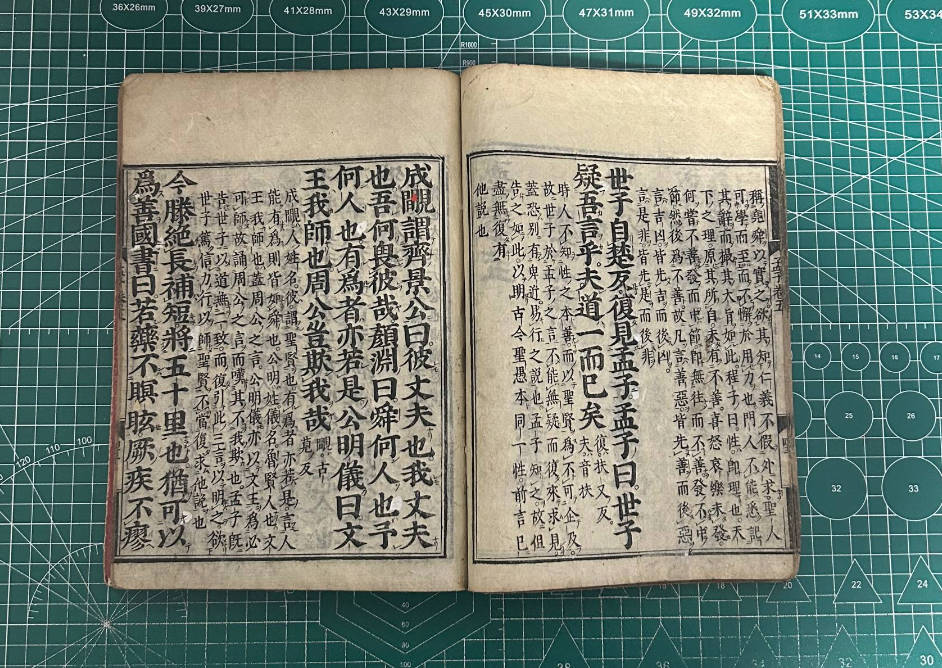 36X26mm
39X27mm
41X28mm
43X29mm
45X30mm
47X31mm
49X32mm
51X33mm
R1000
R900
稱堯舜以實之欲其知仁義不假外求聖人
可學而至而不懈於用力也門人不能悉記
其辭而撮其大旨如此程子曰性即理也天
下之理原其所自未有不善喜怒哀樂未發
何嘗不善發而中節即無往而不善發不中
節然後為不善故凡言善惡皆先善而後惡
言吉凶皆先吉而後凶
言是非皆先是而後非
世子自楚反復見孟子孟子曰世子
疑吾言乎夫道一而已矣
復扶又反
夫音扶
時人不知性之本善而以聖賢為不可企及
故世子於孟子之言不能無疑而復來求見
蓋恐別有卑近易行之說也孟子知之故但
告之如此以明古今聖愚本同一性前言已
盡無復有
他說也
成覸謂齊景公曰彼丈夫也我丈夫
也吾何畏彼哉顏淵曰舜何人也予
何人也有爲者亦若是公明儀曰文
王我師也周公豈欺我哉
覸古
莧反
成覸人姓名彼謂聖賢也有爲者亦若是言人
能有爲則皆如舜也公明姓儀名魯賢人也文
王我師也蓋周公之言公明儀亦以文王爲必
可師故誦周公之言而嘆其不我欺也孟子既
告世子以道無二致而復引此三言以明之欲
世子篤信力行以師聖賢不當復求他說也
今滕絶長補短將五十里也猶可以
爲善國書曰若藥不瞑眩厥疾不瘳
14
16
25
26
32
33
22
24
30
100
110
120